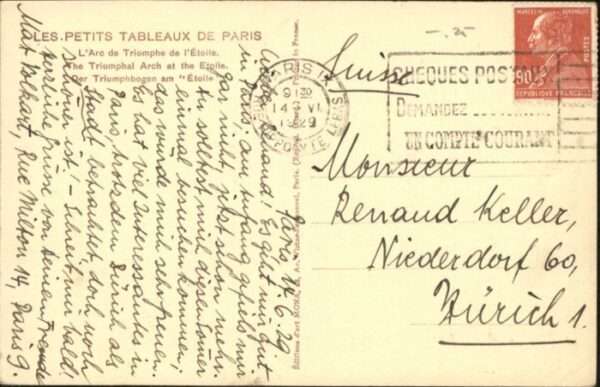 LES PETITS TABLEAUX DE PARIS
L'Arc de Triomphe de l'Étoile.
The Triumphal Arch at the Etoile.
Der Triumphbogen am "Étoile
Paris, 14.6.29
Lieber Renaud! Es geht mir gut
in Paris; am Anfang gefiel's mir
gar nicht, jetzt schon mehr.
Du solltest mich diesen Sommer
einmal besuchen kommen;
das würde mich sehr freuen.
Es hat viel Interessantes in
Paris, trotzdem Zürich als
Stadt betrachtet doch noch
schöner ist! - Schreib mir bald!
Herzliche Grüsse von Deinem Freunde
Max Volkart, Rue Milton 14, Paris 9.
Editions d'art
PARIS IX
9 30
14 VI
1929
-.25
CHEQUES POSTAUX
DEMANDEZ
UN COMPTE COURANT
90
POSTES
REPUBLIQUE FRANCAISE
Suisse
Monsieur
Renaud Keller,
Niederdorf 60,
Zürich 1.